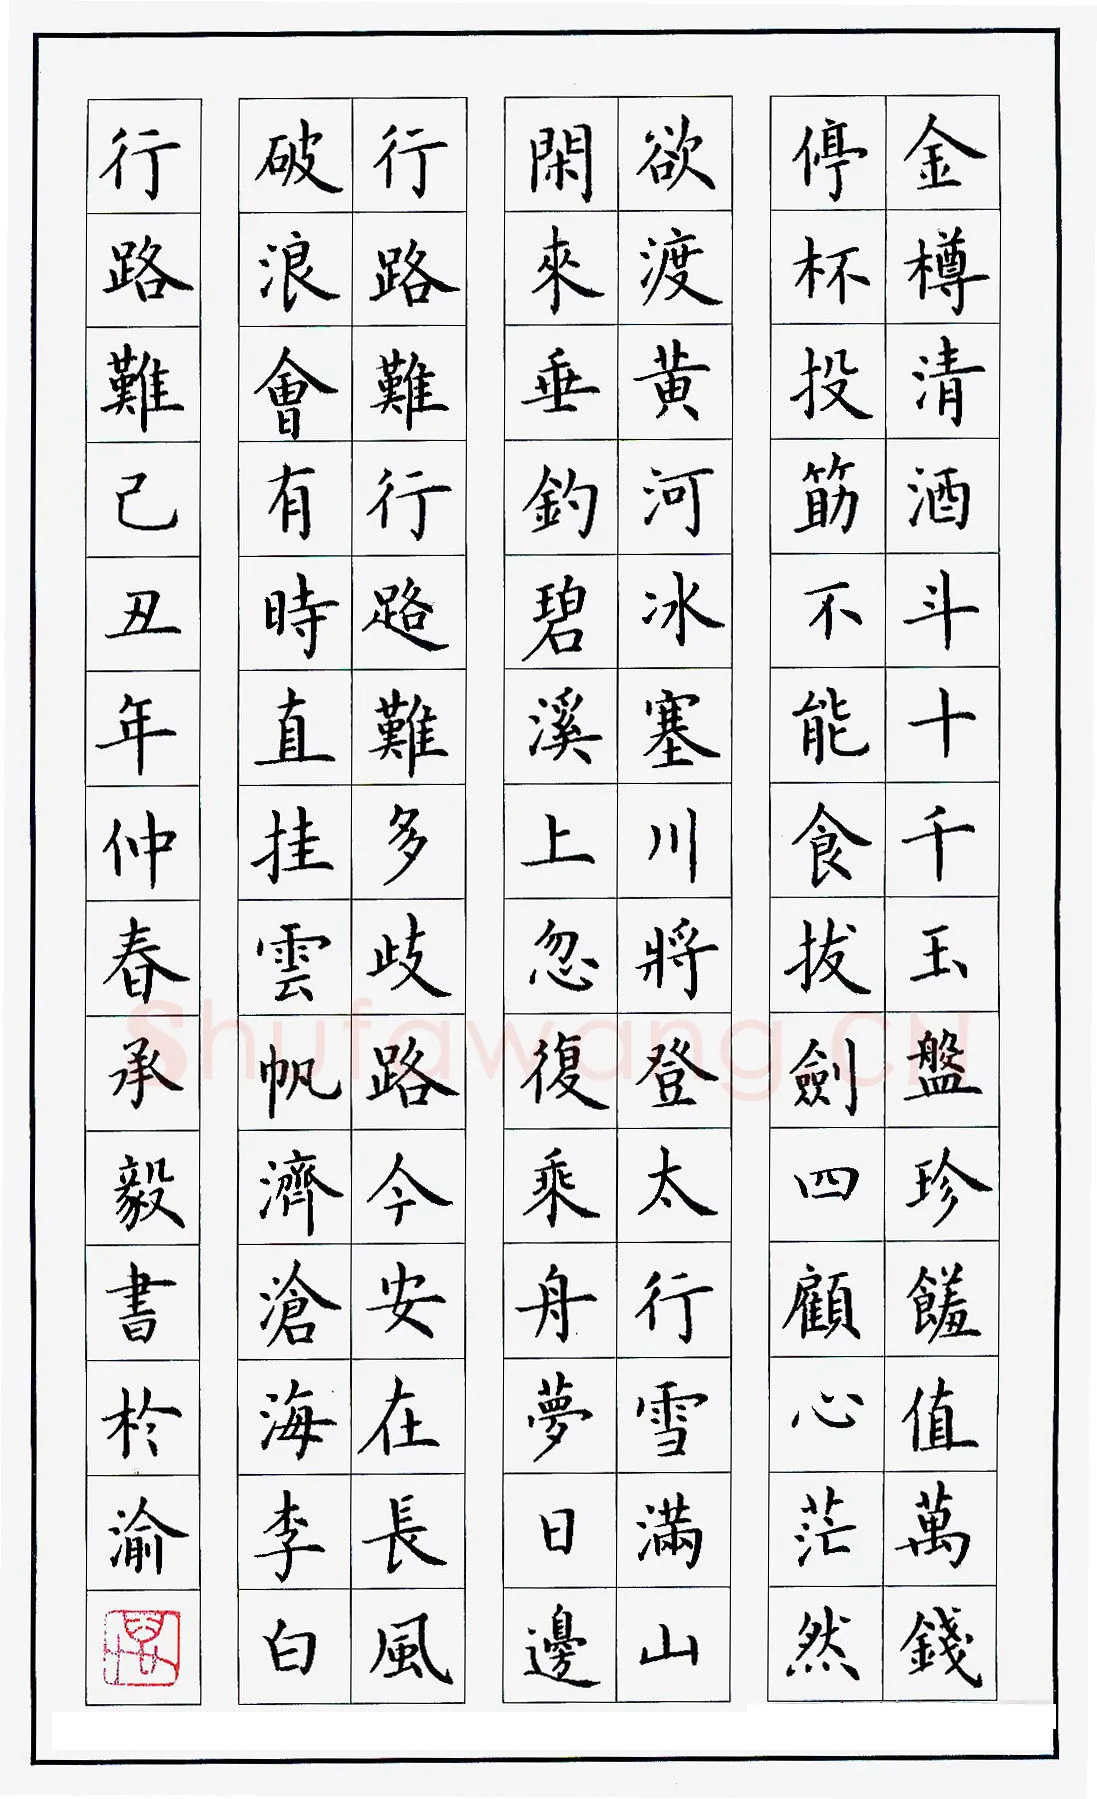 金樽清酒斗十千玉盤珍饈值萬錢
停杯投筯不能食拔劍四顧心茫然
欲渡黃河冰塞川將登太行雪滿山
閑來垂釣碧溪上忽復乘舟夢日邊
行路難行路難多歧路今安在長風
破浪會有時直挂雲帆濟滄海李白
行路難己丑年仲春承毅書於渝
Shufawang.CN